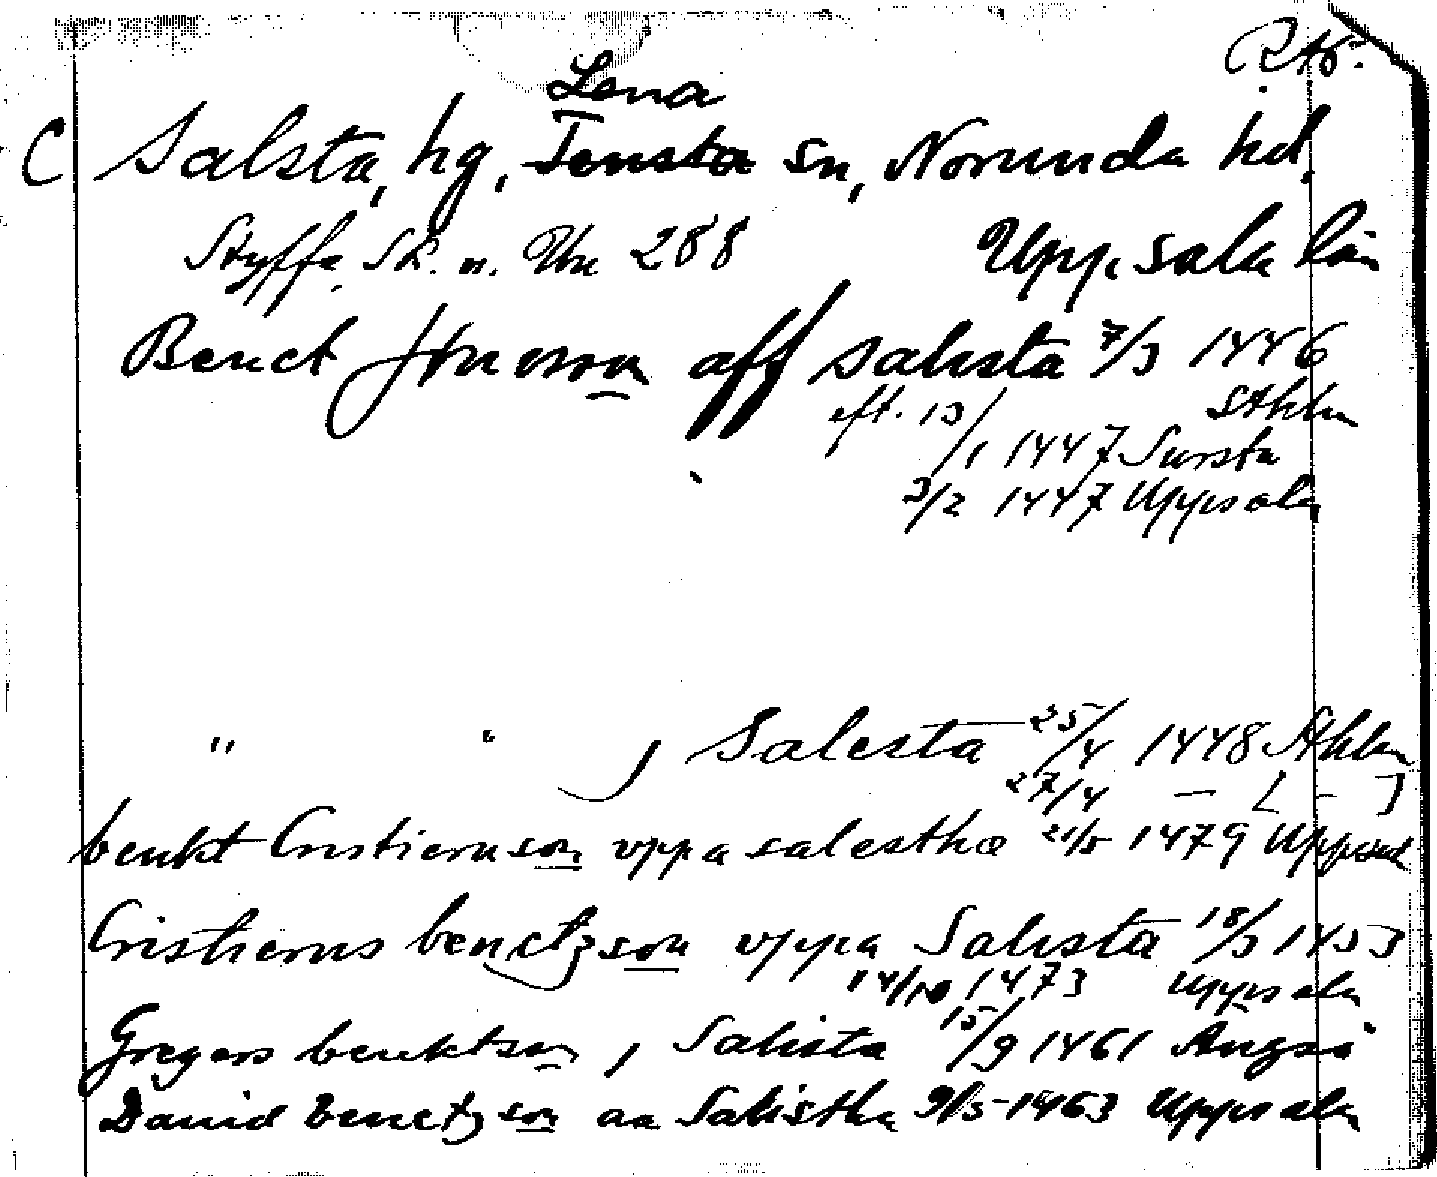 RAp.
Lena
C Salsta, hg, Tensta sn, Norunda hd.
Styffe Sk. u. Un 288 Uppsala län
Benct Jönsson aff Salista 7/3 1446
Sthlm
eft. 13/1 1447 Sursta
3/2 1447 Uppsala
" " j Salesta 25/4 1448 Sthlm
27/4 — [ - ]
benkt Cristiernson vppa salesthæ 21/5 1479 Uppsal
Cristierns benctzson vppa Salista 18/3 1453
14/10 1473 Uppsala
Gregers benktson j Salista 15/9 1461 Ängsö
David benctzson aa Salistha 9/5 1463 Uppsala